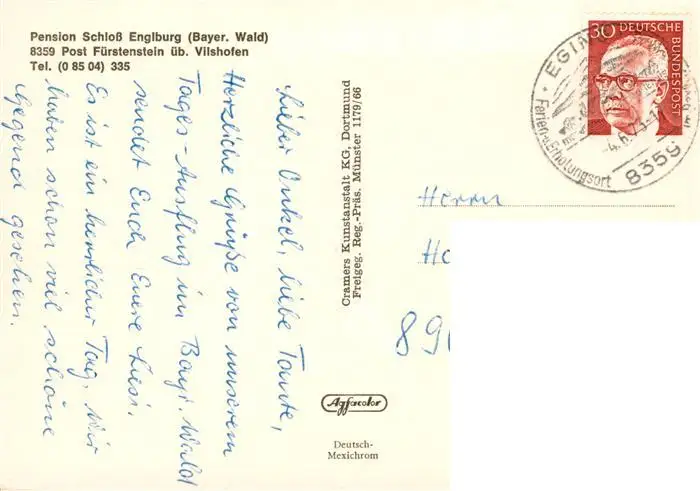 Pension Schloß Englburg (Bayer. Wald)
8359 Post Fürstenstein üb. Vilshofen
Tel. (0 85 04) 335
Lieber Onkel, liebe Tante,
Herzliche Grüße von unserem
Tages-Ausflug im Bayr. Wald
sendet Euch Euere Liesi.
Es ist ein herrlicher Tag. Wir
haben schon viel schöne
Gegend gesehen.
Cramers Kunstanstalt KG, Dortmund
Freigeg. Reg.-Präs. Münster 1179/66
Agfacolor
Deutsch-
Mexichrom
30 DEUTSCHE
BUNDESPOST
Ferien-Erholungsort
8359
Herrn